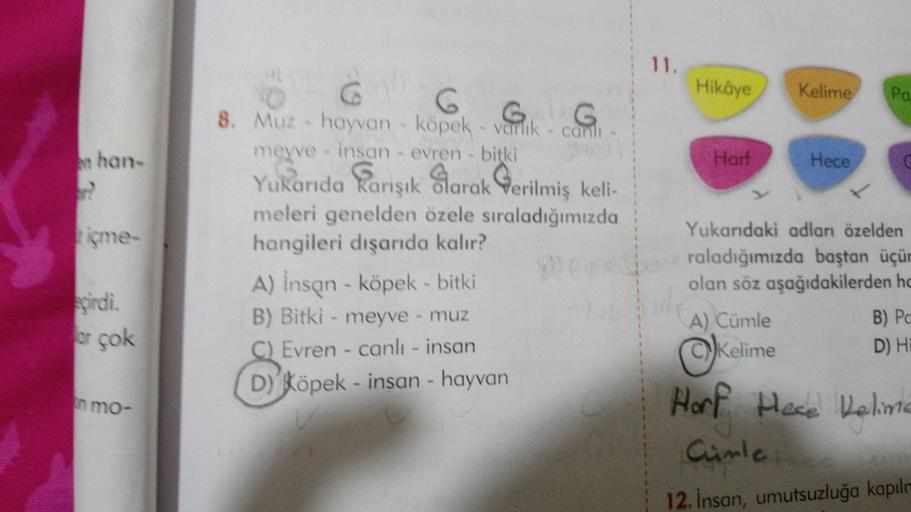 en han-
içme-
eçirdi.
lar çok
mo-
8. Muz - hayvan - köpek - varlık - canlı -
meyve - insan - evren - bitki
Yukarıda karışık olarak verilmiş keli-
meleri genelden özele sıraladığımızda
hangileri dışarıda kalır?
A) İnsan - köpek - bitki
B) Bitki - meyve - muz
C) Evren - canlı - insan
D) Köpek - insan - hayvan
11.
Hikâye Kelime Pa
Harf Hece C
Yukarıdaki adları özelden
raladığımızda baştan üçün
olan söz aşağıdakilerden ha
A) Cümle B) Pa
C) Kelime D) Hi
Harf Hece Kelime
Cümle
12. İnsan, umutsuzluğa kapılr